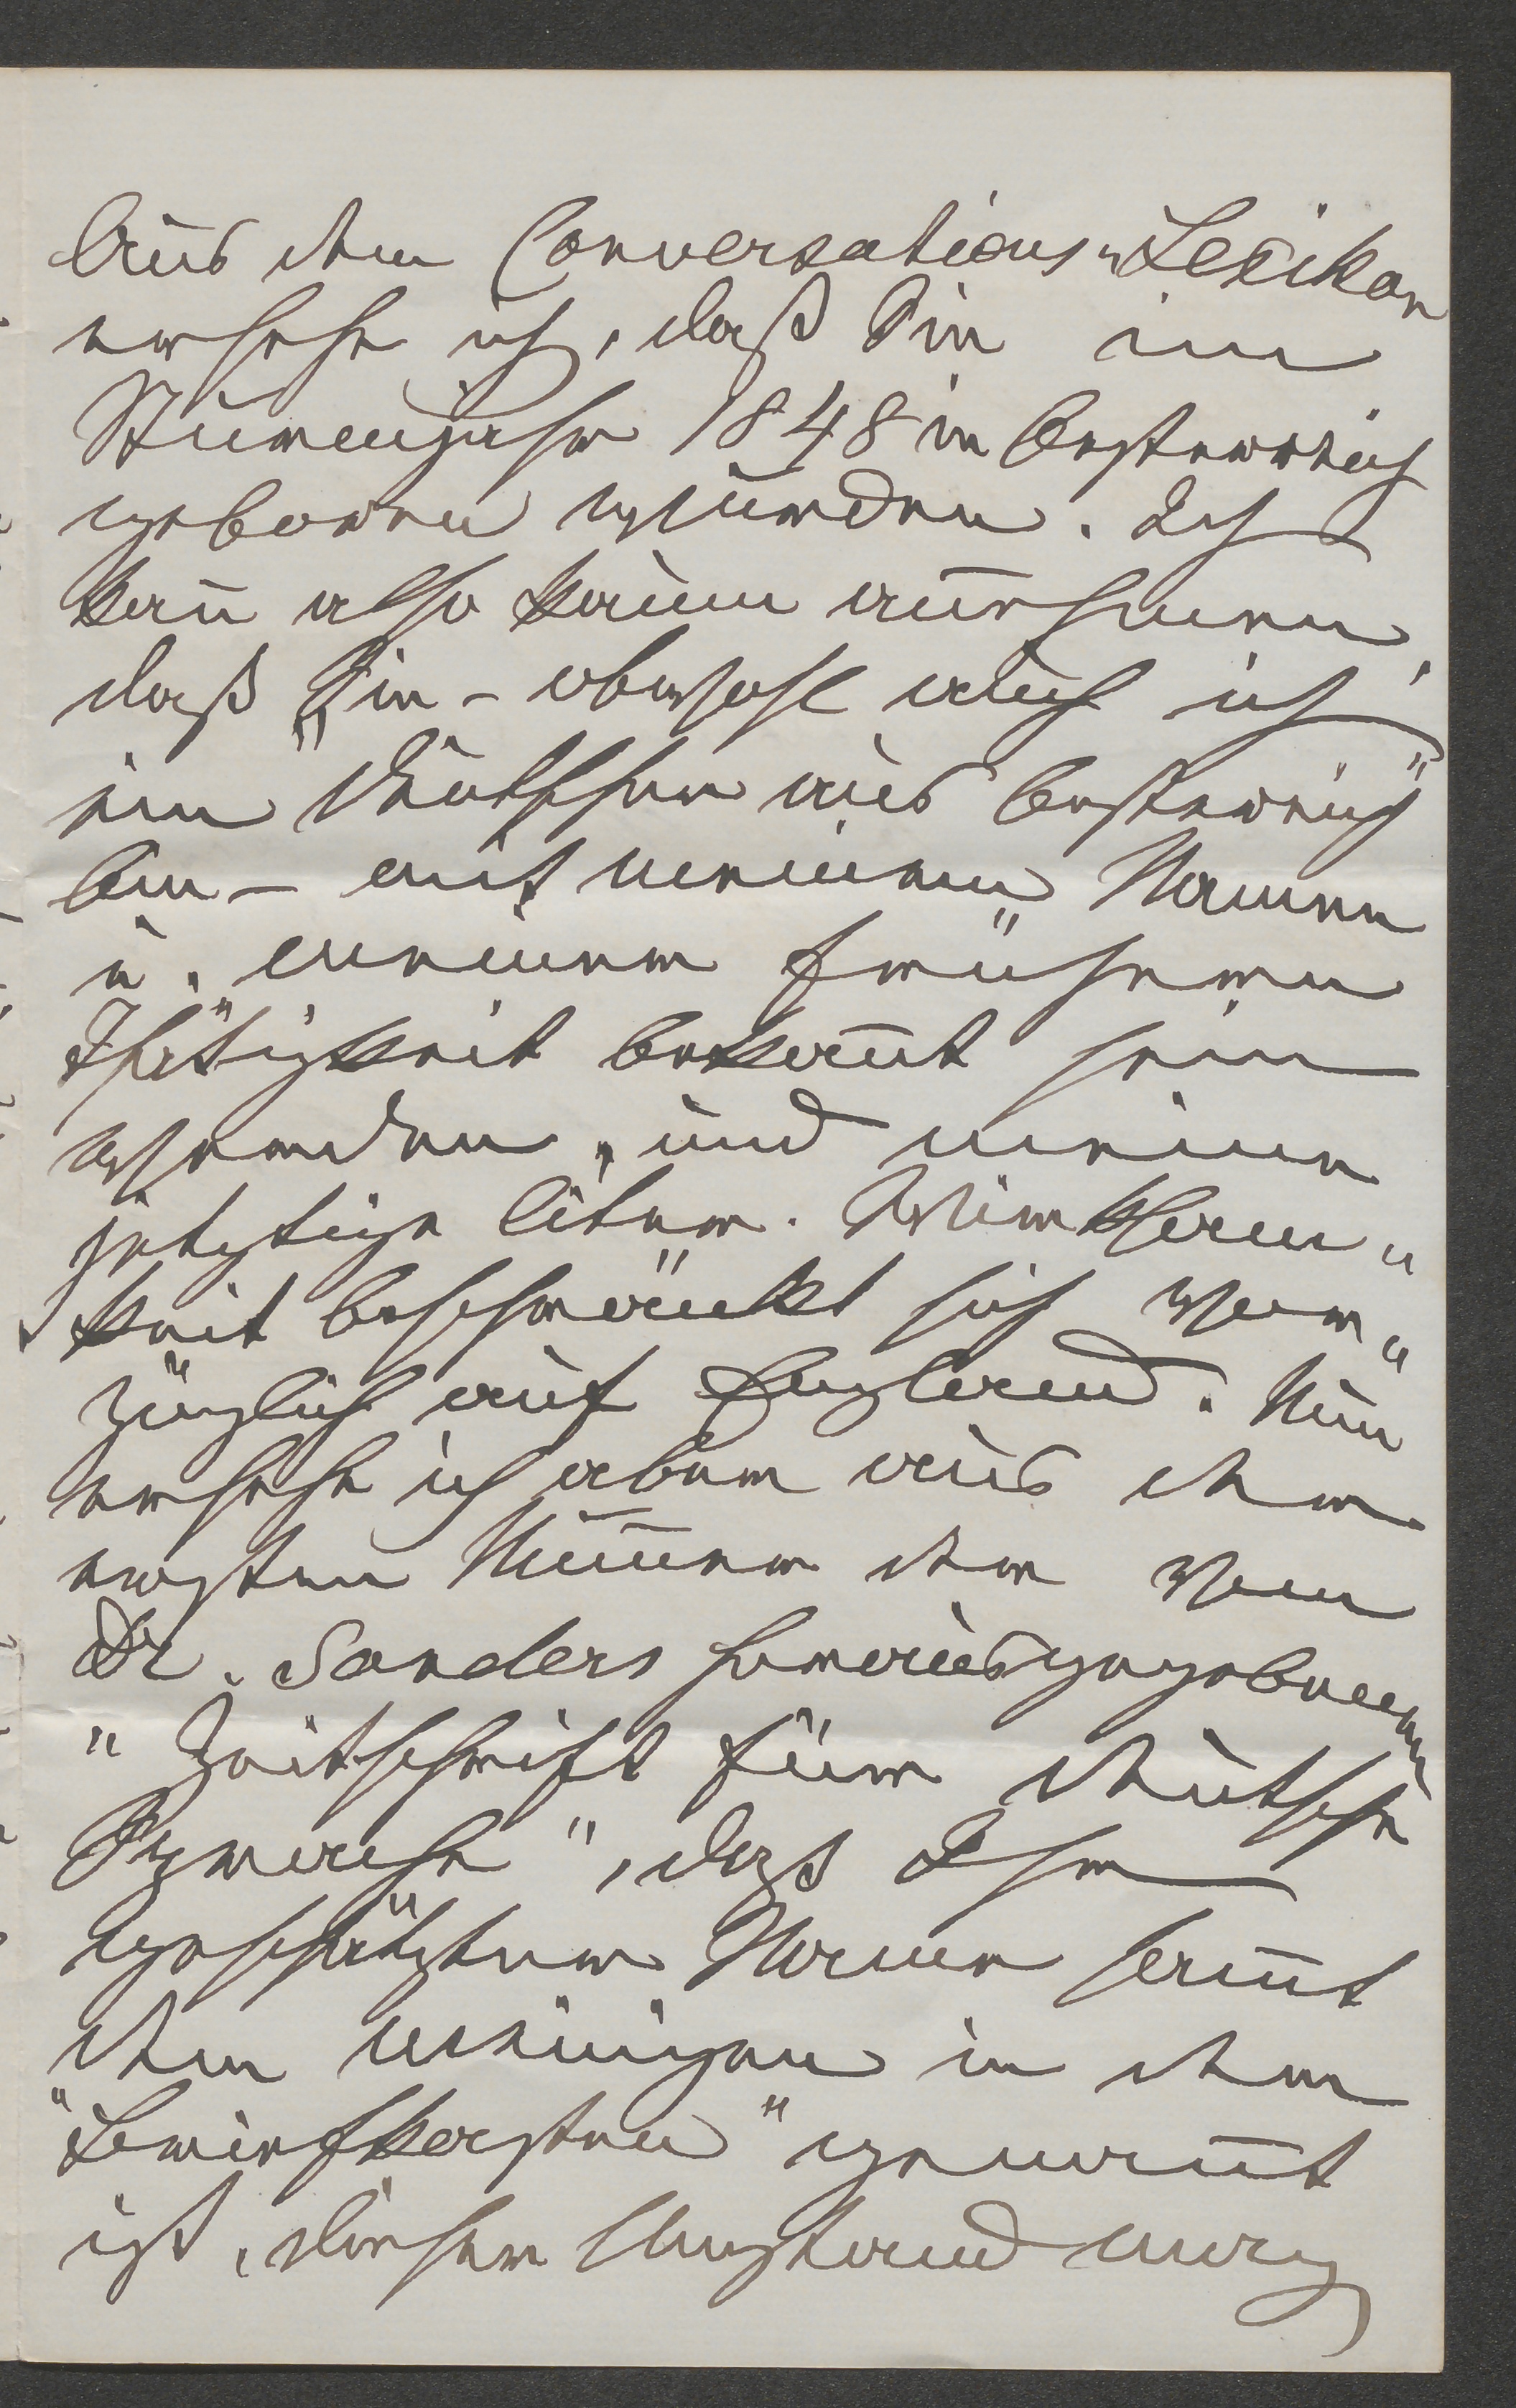 Aus dem Conversations-Lexikon
ersehe ich, daß Sie im
Sturmjahr 1848 in Oesterreich
geboren wurden. Ich
kan̄ also kaum an̄ehmen,
daß Sie – obwohl auch ich
ein „Deutscher aus Oesterreich“
bin – mit meinem Namen
u. meiner früheren
Thätigkeit bekan̄t sein
werden, und meine
jetzige liter. Wirksam-
keit beschränkt sich vor-
züglich auf England. Nun
ersehe ich aber aus der
ersten Num̄er der von
Dr. Sanders herausgegebenen
„Zeitschrift für deutsche
Sprache“, daß Ihr
geschätzter Name sam̄t
dem meinigen in dem
„Briefkasten“ genan̄t
ist, dieser Umstand mag